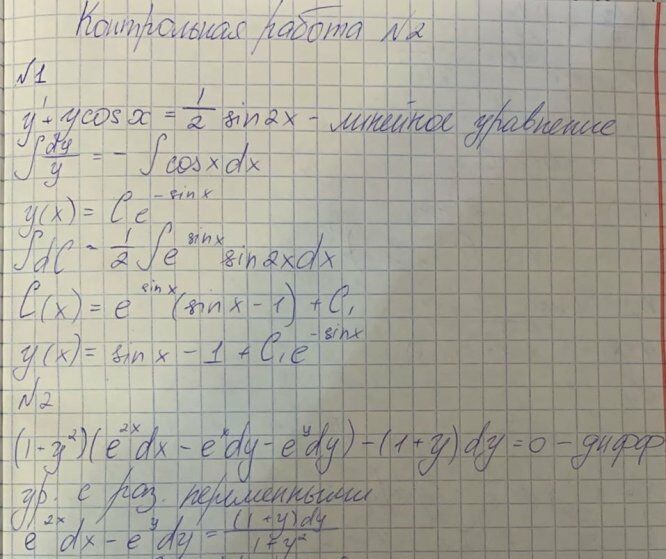 Контрольная работа №2
№1
y' + y cos x = 1/2 sin 2x - линейное уравнение
∫ dy/y = - ∫ cos x dx
y(x) = C e^(-sin x)
∫ dC = 1/2 ∫ e^(sin x) sin 2x dx
C(x) = e^(sin x) (sin x - 1) + C₁
y(x) = sin x - 1 + C₁ e^(-sin x)
№2
(1 - y²)(e^(2x) dx - e^x dy - e^y dy) - (1 + y) dy = 0 - дифф
ур. с раз. переменными
e^(2x) dx - e^y dy = (1 + y) dy / 1 - y²